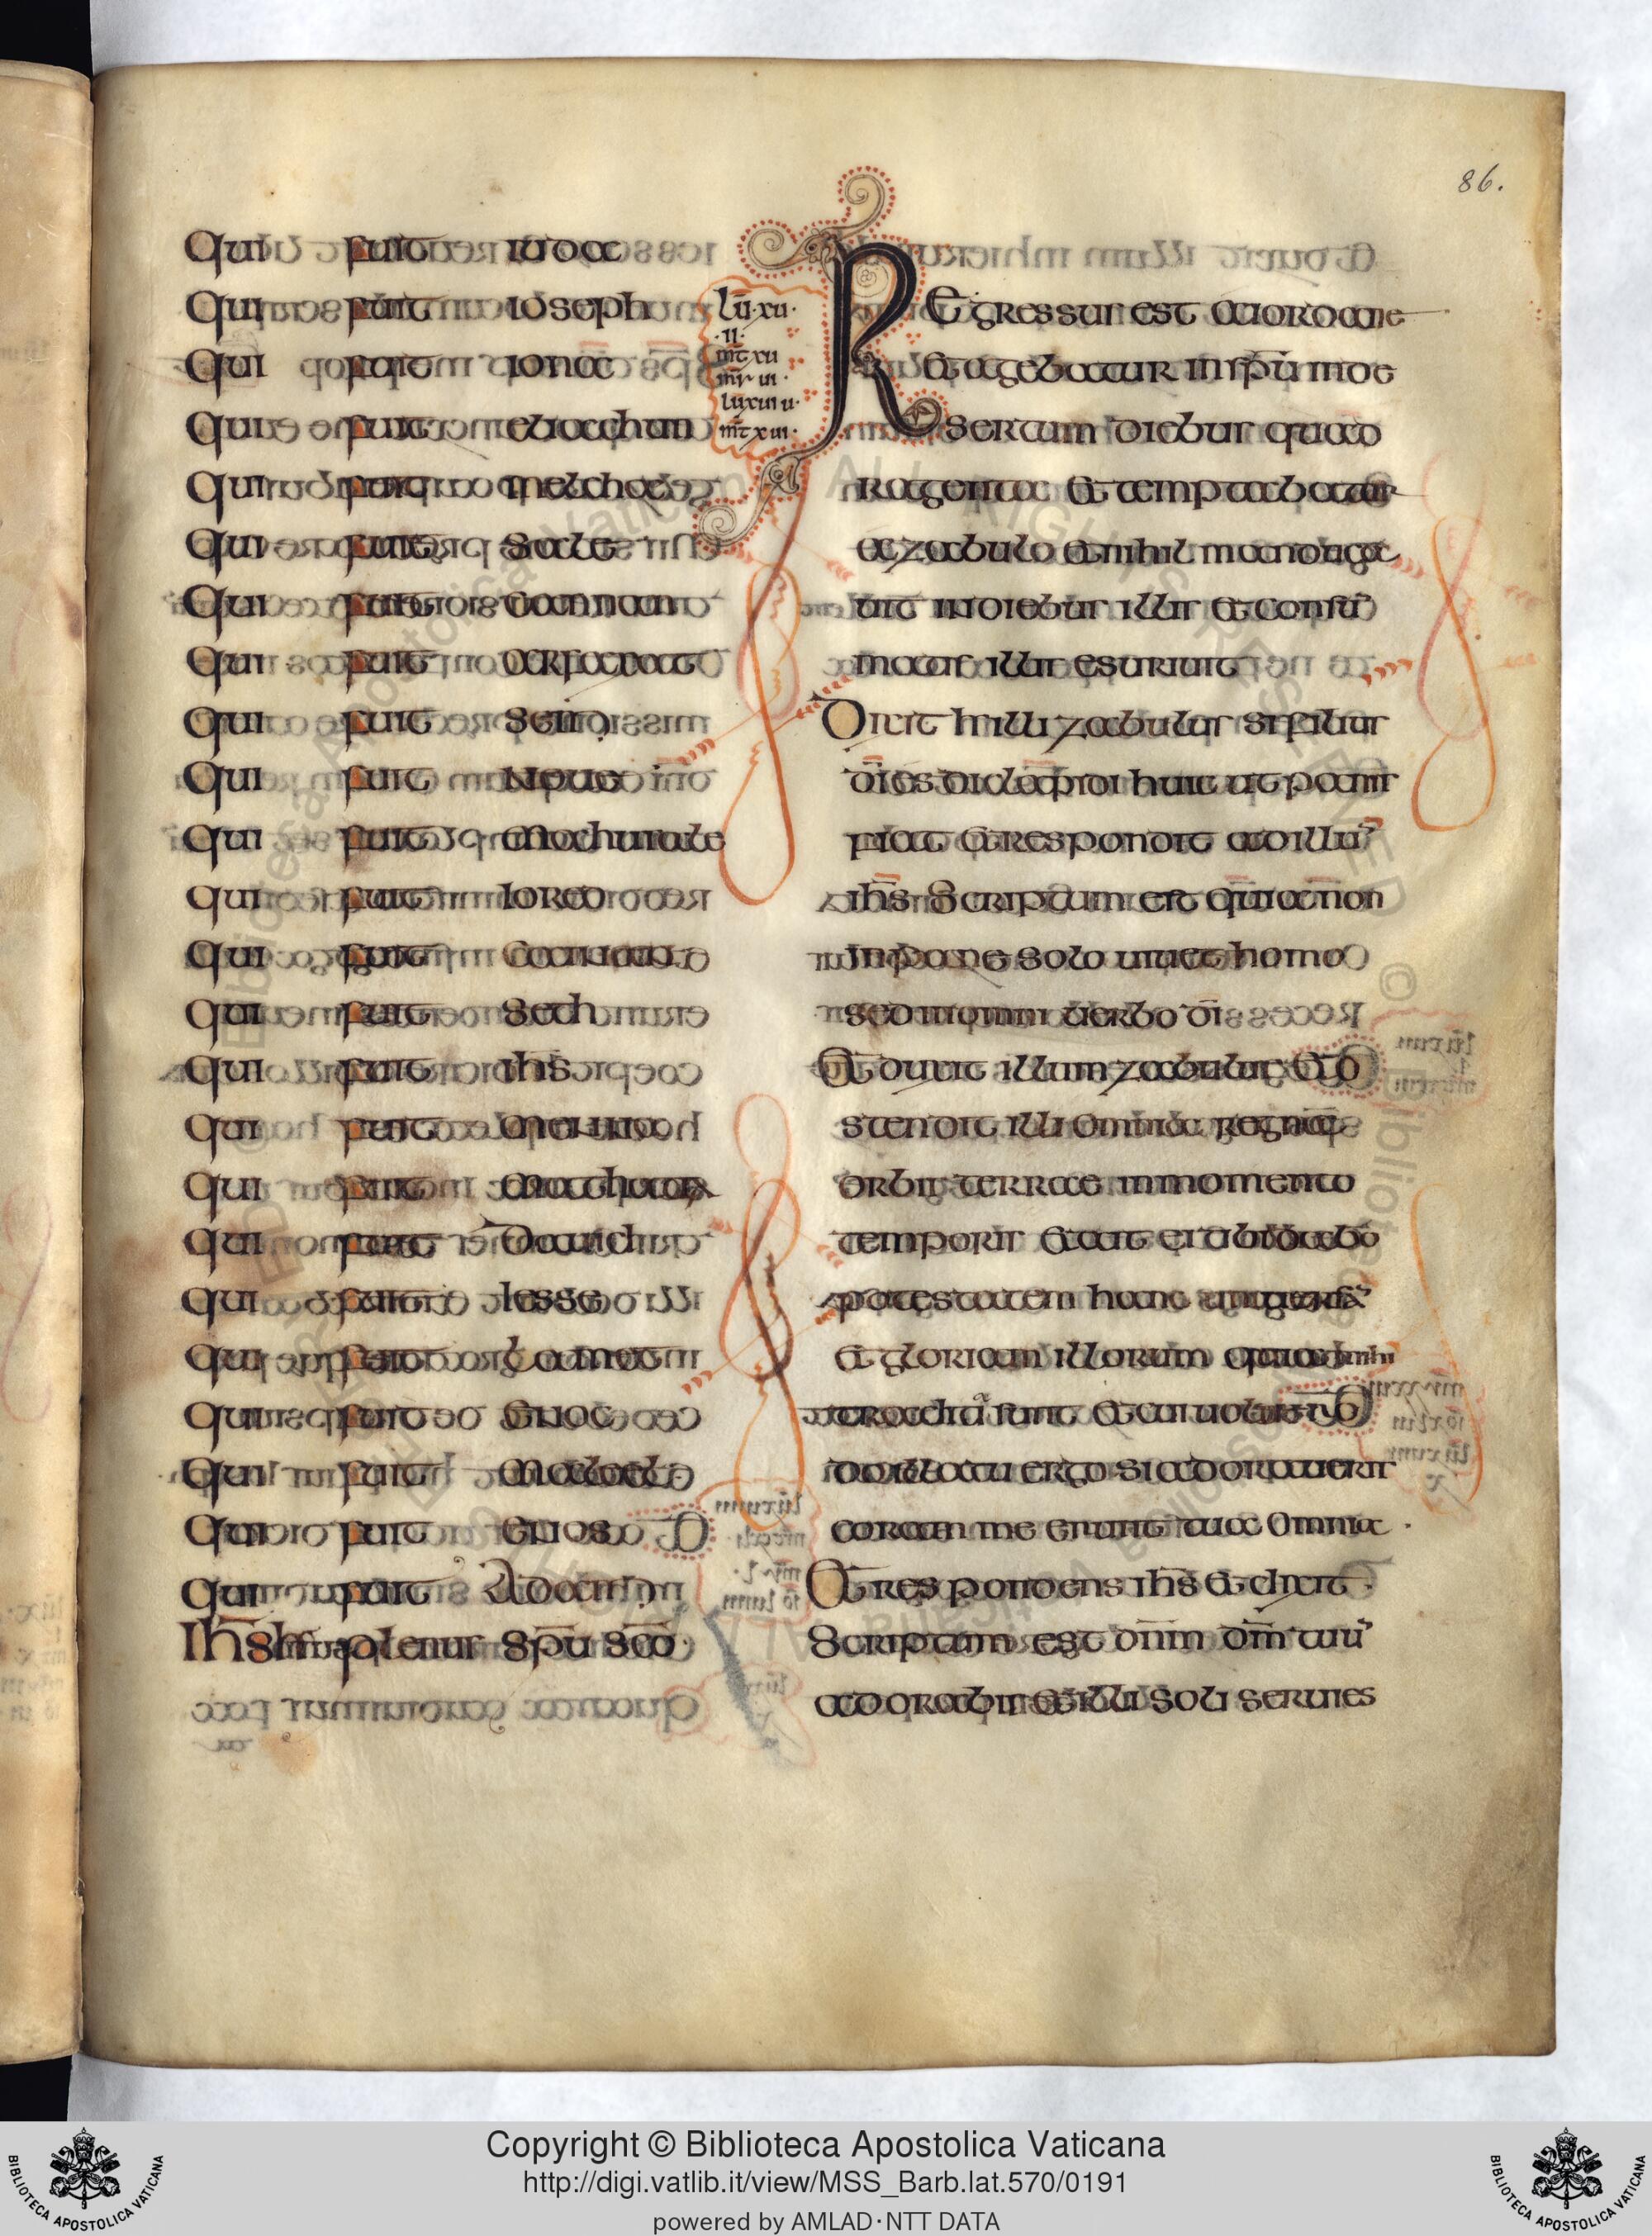 86.
Qui fuit iuda
Qui fuit ioseph
Qui fuit iona
Qui fuit eliachim
Qui fuit melcha
Qui fuit Sale
Qui fuit Cannan
Qui fuit arfaxat
Qui fuit Sem
Qui fuit Noue
Qui fuit Mathusale
Qui fuit Iared
Qui fuit Cainan
Qui fuit Seth
Qui fuit ihs
Qui fuit
Qui fuit
Qui fuit Dauid
Qui fuit Iesse
Qui fuit Lamet
Qui fuit Enoc
Qui fuit
Qui fuit Enos
Qui fuit Adam
Ihs h plenus spu sco
lu xii
ii
mt xu
mr ui
mt xui
REgressus est aiordane
Et agebatur inspu inde
sertum diebus quad
ragenta Et temptabatur
azabulo et nihil manduca
uit indiebus illis et consu
matis illis esuriuit
Dixit h illi zabulus si filius
di es dic lapidi huic ut panis
fiat et respondit ad illu
ihs Scriptum est quia non
In pane solo uiuet homo
sed in omni uerbo di
Et duxit illum zabulus et o
stendit illi omnia regna
orbis terrae in momento
temporis Et ait ei tibi dabo
potestatem hanc uniuersa
Et gloriam illorum quia mihi
tradita sunt Et cui uolo
do illa tu ergo si adoraueris
coram me erunt tua omnia
Et respondens ihs et dixit
Scriptum est dnm dm tuu
adorabis et illi soli seruies
Copyright © Biblioteca Apostolica Vaticana
http://digi.vatlib.it/view/MSS_Barb.lat.570/0191
powered by AMLAD·NTT DATA
BIBLIOTECA APOSTOLICA VATICANA
BIBLIOTECA APOSTOLICA VATICANA